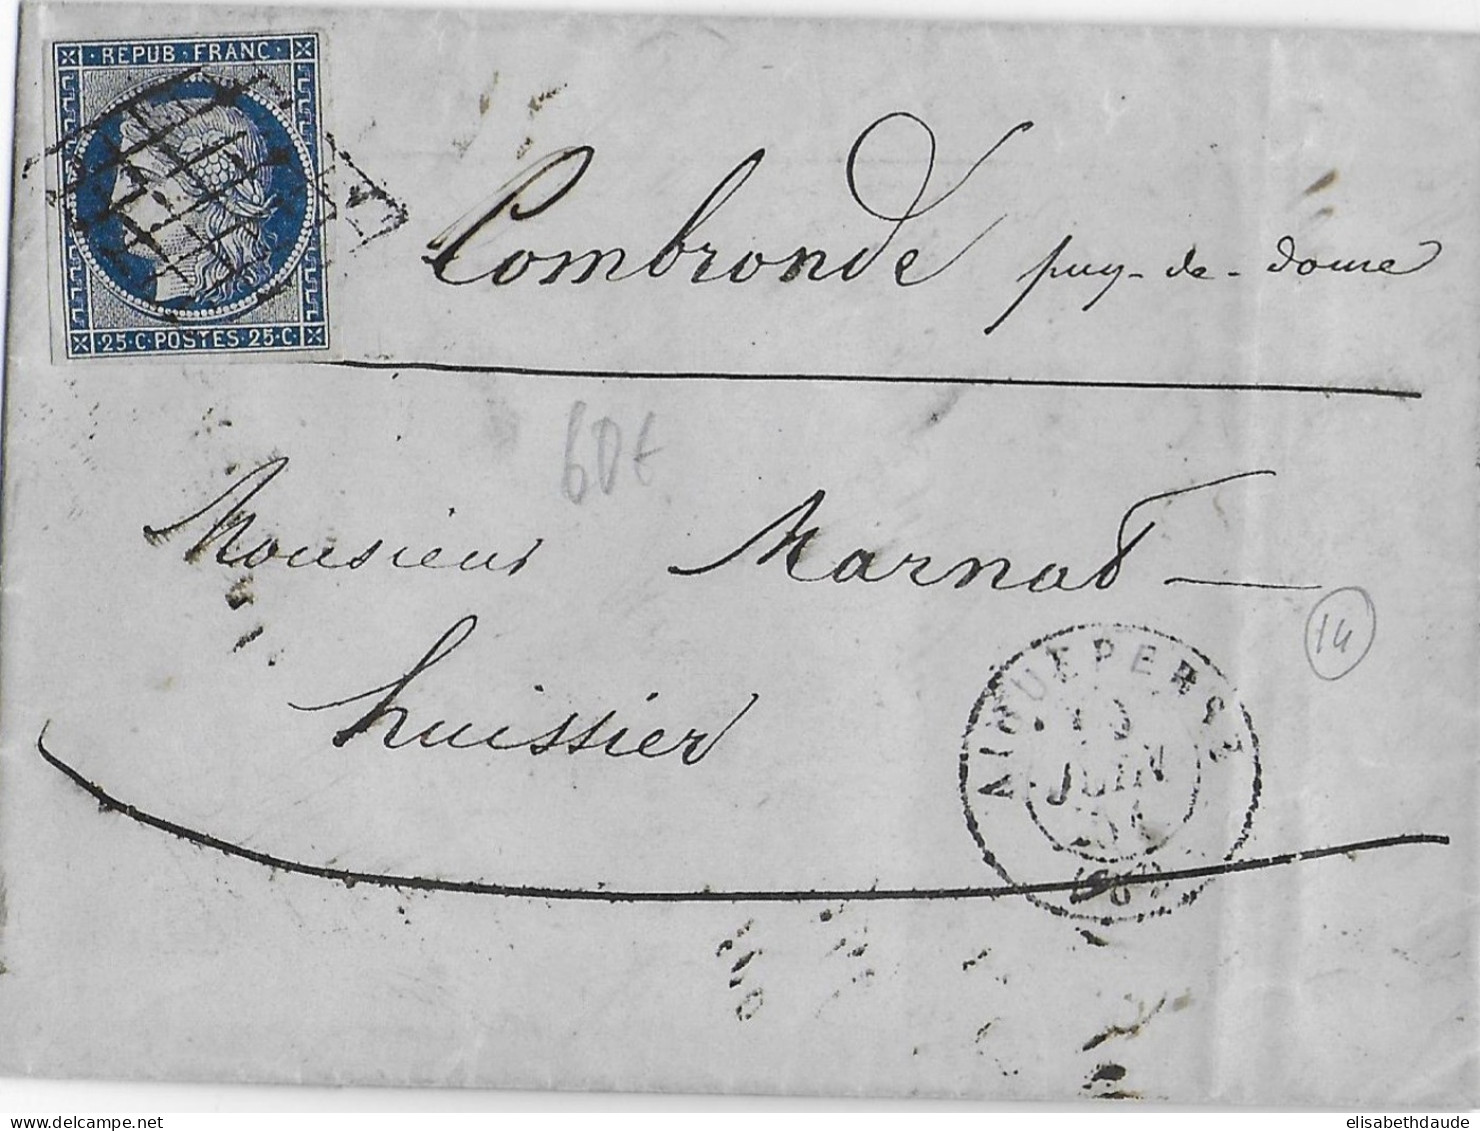 REPUB · FRANC ·
· 25 · C · POSTES · 25 · C ·
Combronde puy-de-dome
60€
Monsieur Marnat
huissier
14
AIGUEPERSE
JUIN
51
(62)
elisabethdaude